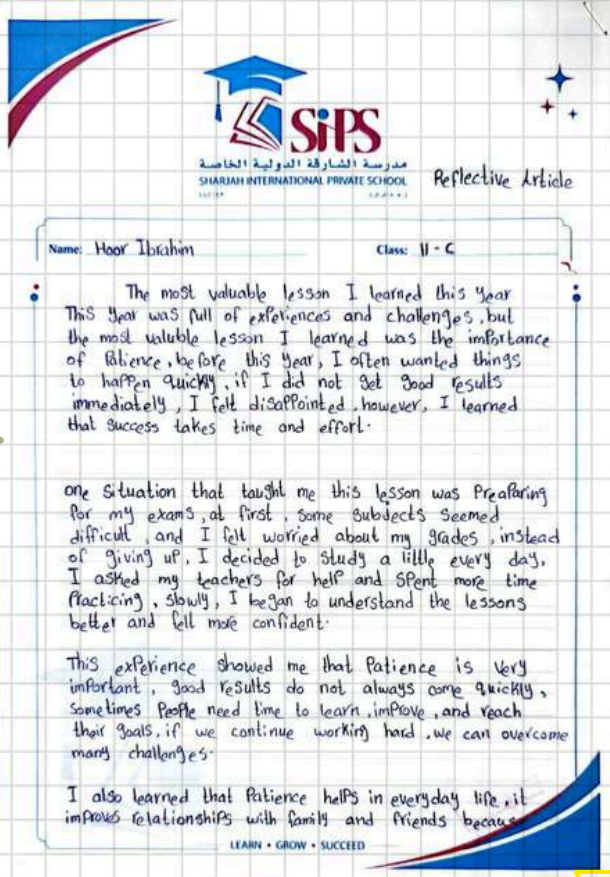 SiPS
مدرسة الشارقة الدولية الخاصة
SHARJAH INTERNATIONAL PRIVATE SCHOOL
Reflective Article
Name: Hoor Ibrahim Class: 11 - C
The most valuable lesson I learned this year
This year was full of experiences and challenges, but
the most valuble lesson I learned was the importance
of Patience, before this year, I often wanted things
to happen quickly, if I did not get good results
immediately, I felt disappointed, however, I learned
that success takes time and effort.
one situation that taught me this lesson was Preaparing
for my exams, at first, some subjects seemed
difficult, and I felt worried about my grades, instead
of giving up, I decided to study a little every day,
I asked my teachers for help and spent more time
Practicing, slowly, I began to understand the lessons
better and fell more confident.
This experience showed me that Patience is very
important, good results do not always come quickly,
sometimes People need time to learn, improve, and reach
their goals, if we continue working hard, we can overcome
many challenges.
I also learned that Patience helps in everyday life, it
improves relationships with family and friends because
LEARN • GROW • SUCCEED